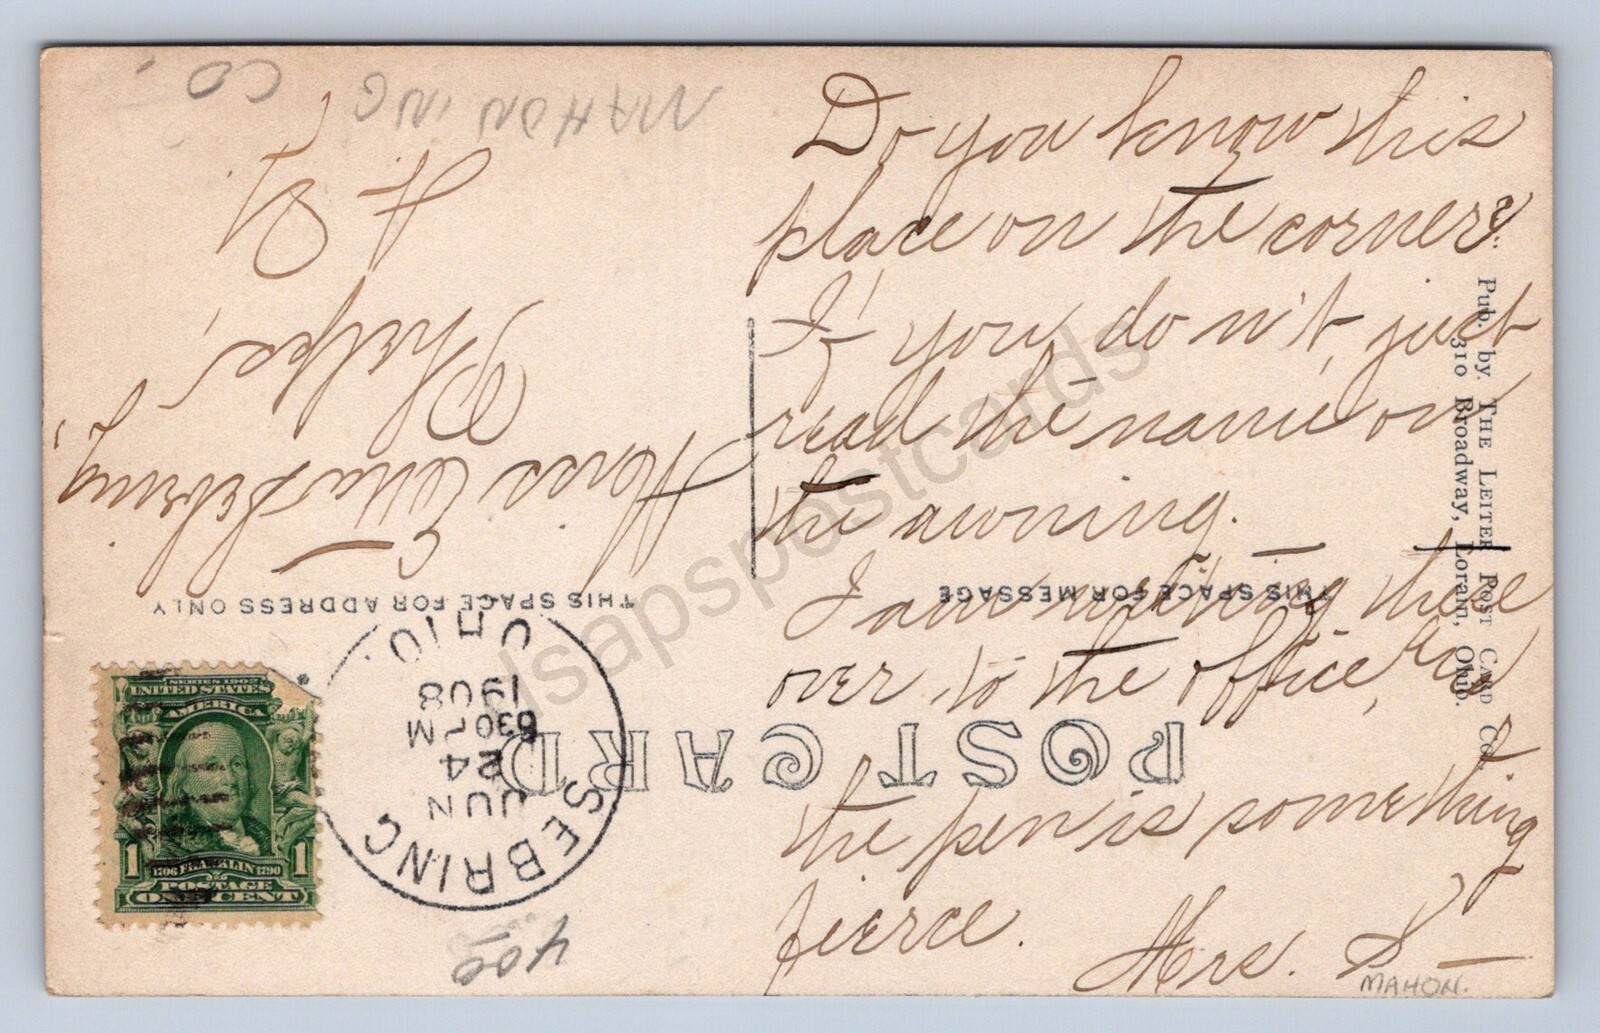 Do you know this
place on the corner?
If you don't, just
read the name on
the awning. —
I am writing these
over to the office, and
the pen is something
fierce.
Mrs. S—
MAHON.
Pub. by. THE LEITER POST CARD Co.
310 Broadway, Lorain, Ohio.
POST CARD
THIS SPACE FOR MESSAGE
THIS SPACE FOR ADDRESS ONLY
Miss Ella Sebring,
Phelps,
N. Y.
MAHONING CO.
SEBRING
OHIO.
JUN
24
630PM
1908
SERIES 1902
UNITED STATES
AMERICA
1 1
1706 FRANKLIN 1790
POSTAGE
ONE CENT
400
dsapspostcards